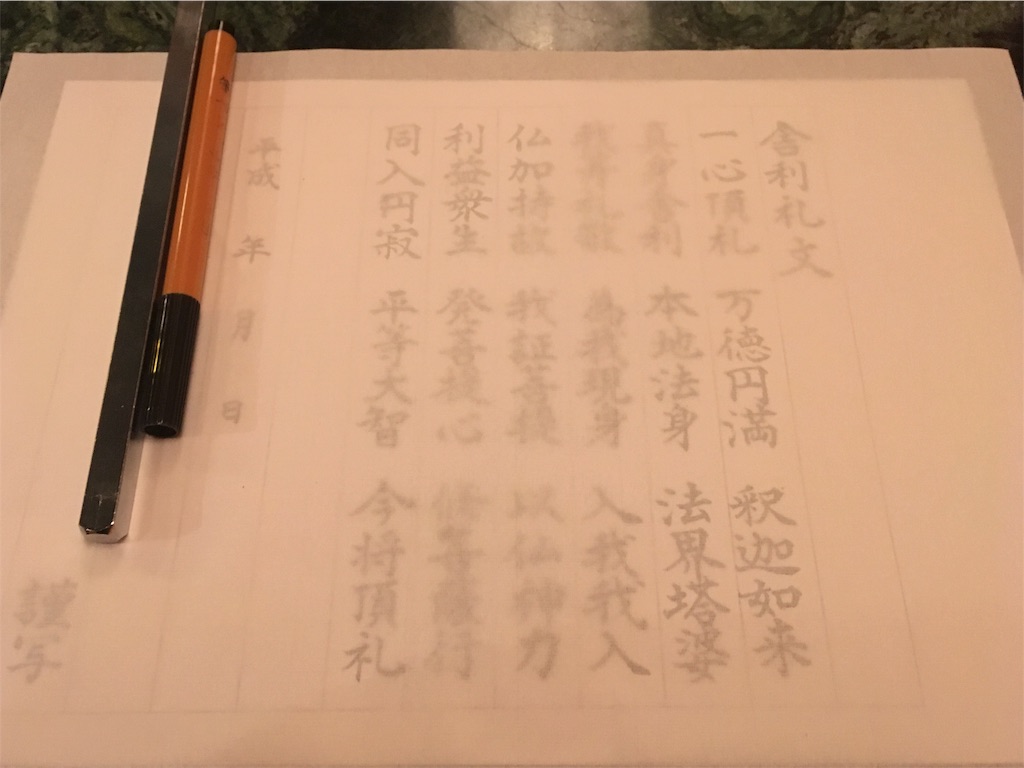 舎利礼文
一心頂礼 万徳円満 釈迦如来
真身舎利 本地法身 法界塔婆
我等礼敬 為我現身 入我我入
仏加持故 我証菩提 以仏神力
利益衆生 発菩提心 修菩薩行
同入円寂 平等大智 今将頂礼
平成 年 月 日
謹写